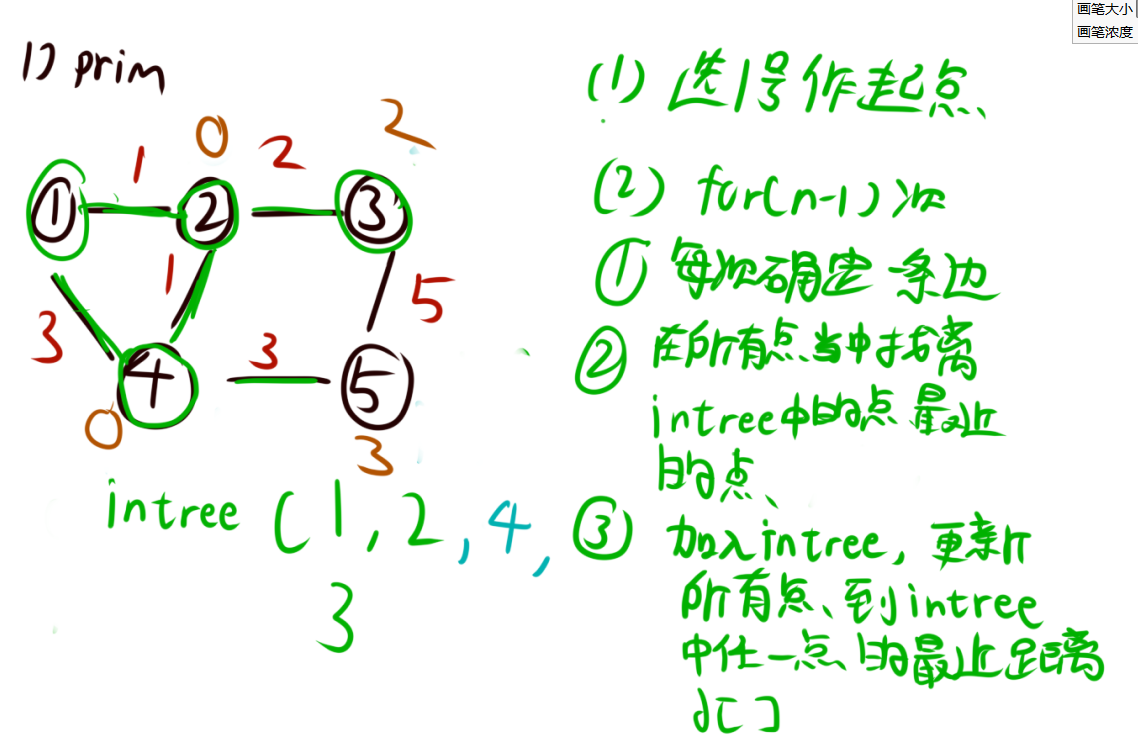 画笔大小
画笔浓度
1) prim
0
2
1
2
① ② ③
1
3
5
3
④ ⑤
0
3
intree (1,2,4,
3
(1) 选1号作起点、
(2) for(n-1)次
① 每次确定一条边
② 在所有点当中找离
intree中的点最近
的点、
③ 加入intree, 更新
所有点、到intree
中任一点的最近距离
d[]